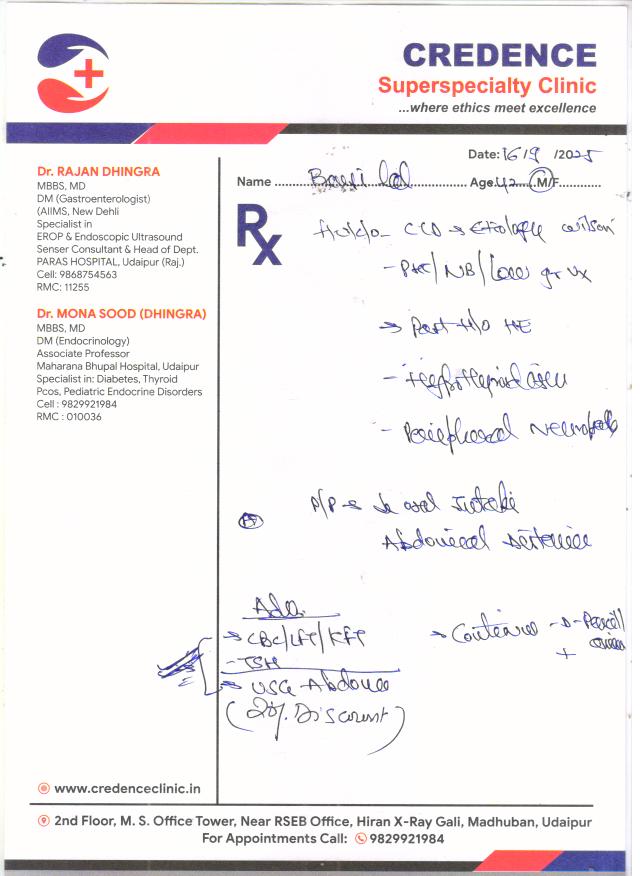 CREDENCE
Superspecialty Clinic
...where ethics meet excellence
Dr. RAJAN DHINGRA
MBBS, MD
DM (Gastroenterologist)
(AIIMS, New Dehli
Specialist in
EROP & Endoscopic Ultrasound
Senser Consultant & Head of Dept.
PARAS HOSPITAL, Udaipur (Raj.)
Cell: 9868754563
RMC: 11255
Dr. MONA SOOD (DHINGRA)
MBBS, MD
DM (Endocrinology)
Associate Professor
Maharana Bhupal Hospital, Udaipur
Specialist in: Diabetes, Thyroid
Pcos, Pediatric Endocrine Disorders
Cell : 9829921984
RMC : 010036
Date: 16/9 /2025
Name Lal Age 42 M/F
Rx
CLD → Etiology wilson
- PHT/NB/Low gr vx
→ Past H/O HE
- Hypothyroidism
- Peripheral Neuropath
Abdominal distension
Adv.
→ CBC/LFT/KFT
- TSH
→ USG Abdomen
(20% Discount)
→ Continue -D-
+
www.credenceclinic.in
2nd Floor, M. S. Office Tower, Near RSEB Office, Hiran X-Ray Gali, Madhuban, Udaipur
For Appointments Call: 9829921984